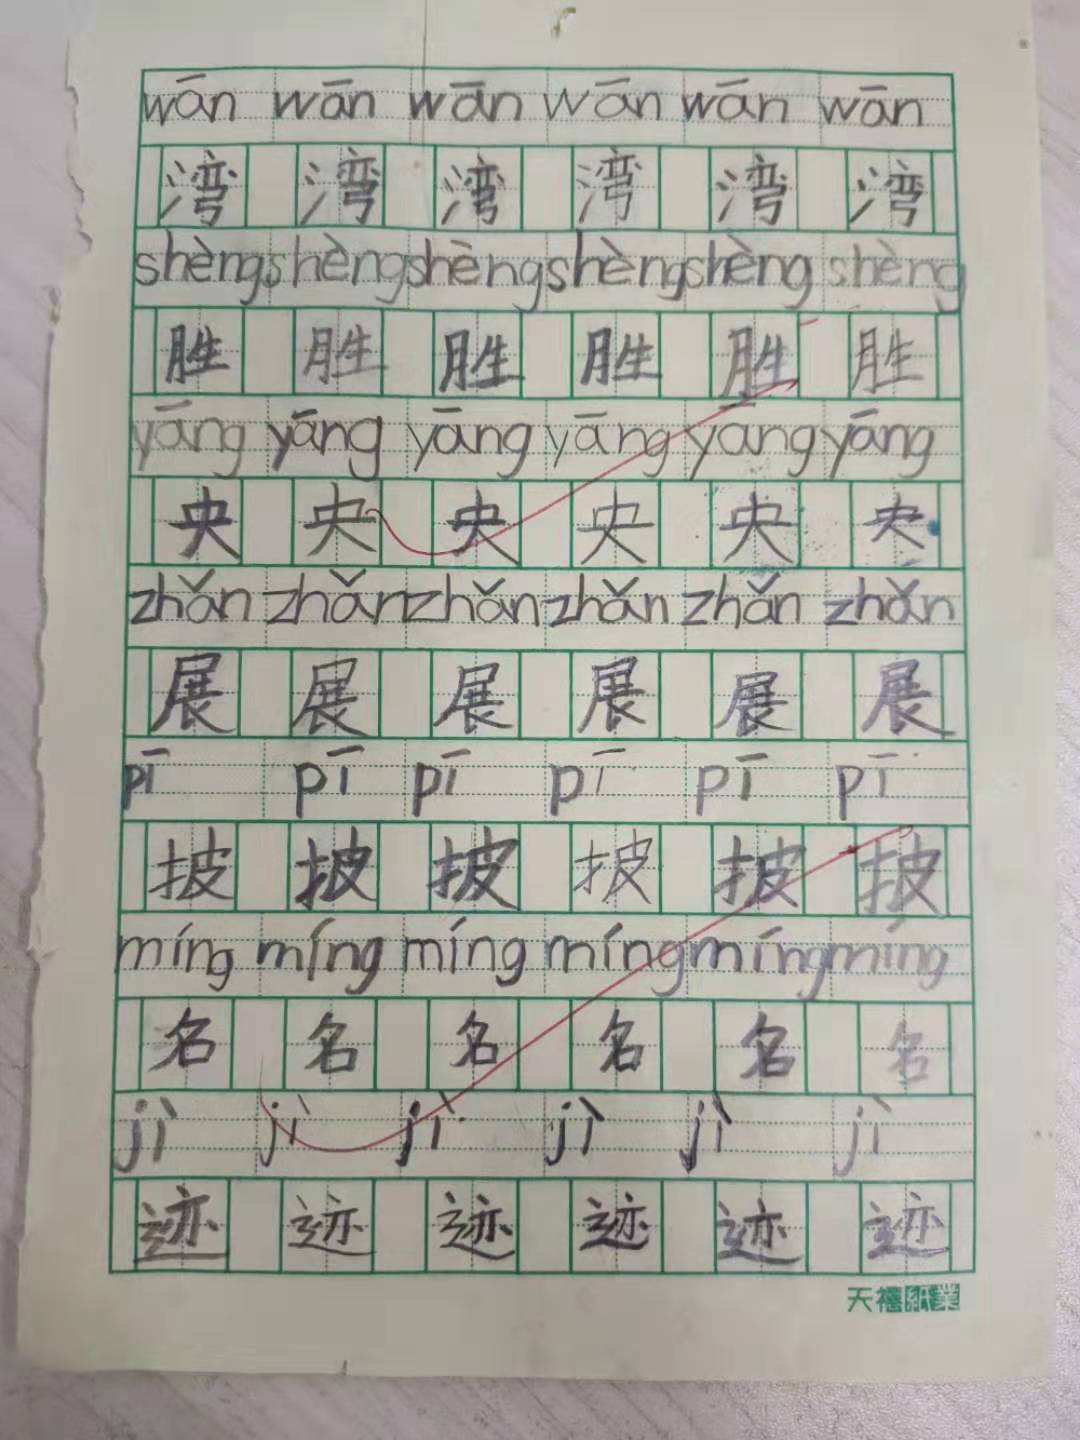 wān wān wān wān wān wān
湾 湾 湾 湾 湾 湾
shèng shèng shèng shèng shèng shèng
胜 胜 胜 胜 胜 胜
yāng yāng yāng yāng yāng yāng
央 央 央 央 央 央
zhǎn zhǎn zhǎn zhǎn zhǎn zhǎn
展 展 展 展 展 展
pī pī pī pī pī pī
披 披 披 披 披 披
míng míng míng míng míng míng
名 名 名 名 名 名
jì jì jì jì jì jì
迹 迹 迹 迹 迹 迹
天福紙業